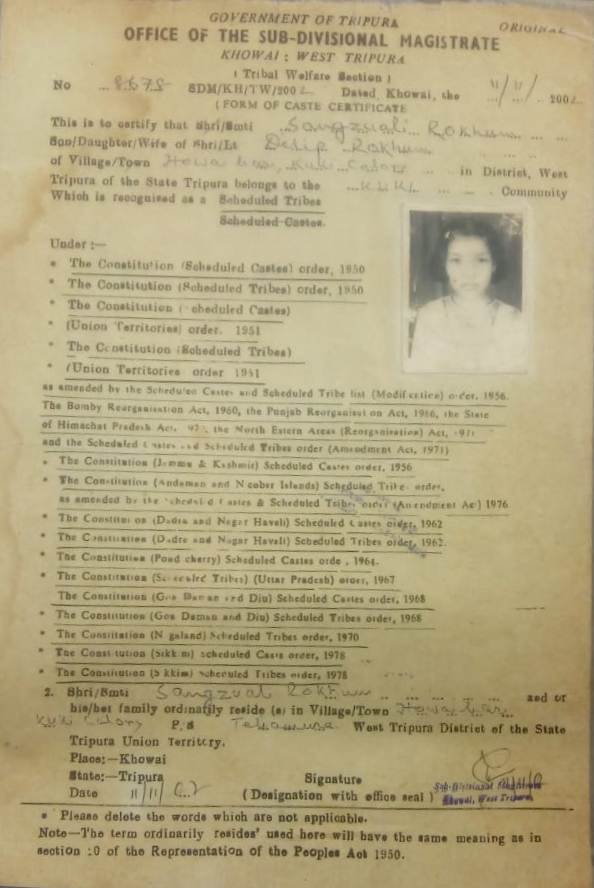 GOVERNMENT OF TRIPURA
ORIGINAL
OFFICE OF THE SUB-DIVISIONAL MAGISTRATE
KHOWAI : WEST TRIPURA
( Tribal Welfare Section )
No ... 8678 SDM/KH/TW/200 Dated, Khowai, the 11/11/ 200
( FORM OF CASTE CERTIFICATE
This is to certify that Shri/Smti Sangzuali Rokhum
Son/Daughter/Wife of Shri/Lt Delip Rokhum
of Village/Town Howaibari, Kuki Colony in District, West
Tripura of the State Tripura belongs to the ...Kuki... Community
Which is recognised as a Scheduled Tribes
Scheduled-Castes.
Under :—
* The Constitution (Scheduled Castes) order, 1950
* The Constitution (Scheduled Tribes) order, 1950
* The Constitution (Scheduled Castes)
* (Union Territories) order. 1951
* The Constitution (Scheduled Tribes)
* (Union Territories order 1951
as amended by the Scheduled Castes and Scheduled Tribe list (Modification) order, 1956.
The Bomby Reorganisation Act, 1960, the Punjab Reorganisation Act, 1966, the State
of Himachat Pradesh Act, the North Estern Areas (Reorganisation) Act,
and the Scheduled Castes and Scheduled Tribes order (Amendment Act, 1971)
* The Constitution (Jammu & Kashmir) Scheduled Castes order, 1956
* The Constitution (Andaman and Nicober Islands) Scheduled Tribe order,
as amended by the Scheduled Castes & Scheduled Tribes order (Amendment Act) 1976
* The Constitution (Dadra and Nagar Haveli) Scheduled Castes order, 1962
* The Constitution (Dadre and Nagar Haveli) Scheduled Tribes order, 1962.
* The Constitution (Pondcherry) Scheduled Castes orde , 1964.
* The Constitution (Scheduled Tribes) (Uttar Pradesh) order, 1967
The Constitution (Goa Daman and Diu) Scheduled Castes order, 1968
* The Constitution (Goa Daman and Diu) Scheduled Tribes order, 1968
* The Constitution (Nagaland) Scheduled Tribes order, 1970
* The Constitution (Sikkim) scheduled Caste order, 1978
* The Constitution (Sikkim) scheduled Tribes order, 1978
2. Shri/Smti Sangzual Rokhum and or
his/her family ordinarily reside (s) in Village/Town Howaibari
Kuki Colony P.S Teliamura West Tripura District of the State
Tripura Union Territory.
Place:—Khowai
State:—Tripura Signature
Date 11/11/02 ( Designation with office seal )
Sub-Divisional Magistrate
Khowai, West Tripura
* Please delete the words which are not applicable.
Note—The term ordinarily resides' used here will have the same meaning as in
section 20 of the Representation of the Peoples Act 1950.